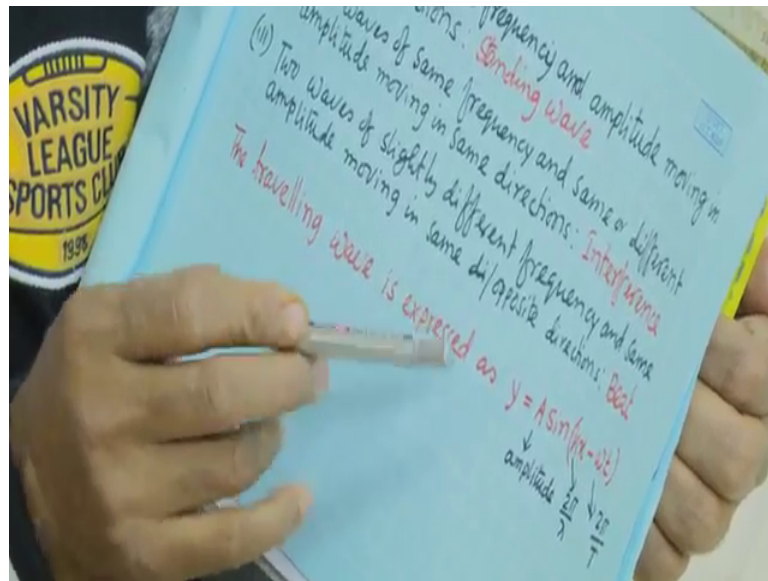 VARSITY
LEAGUE
SPORTS
1998
frequency and amplitude moving in
Standing wave
waves of same frequency and same or different
amplitude moving in same directions: Interference
(iii) Two waves of slightly different frequency and same
amplitude moving in same di/opposite directions: Beat
The travelling wave is expressed as y = A sin(kx - ωt)
↓ ↓ ↓
amplitude 2π/λ 2π/T